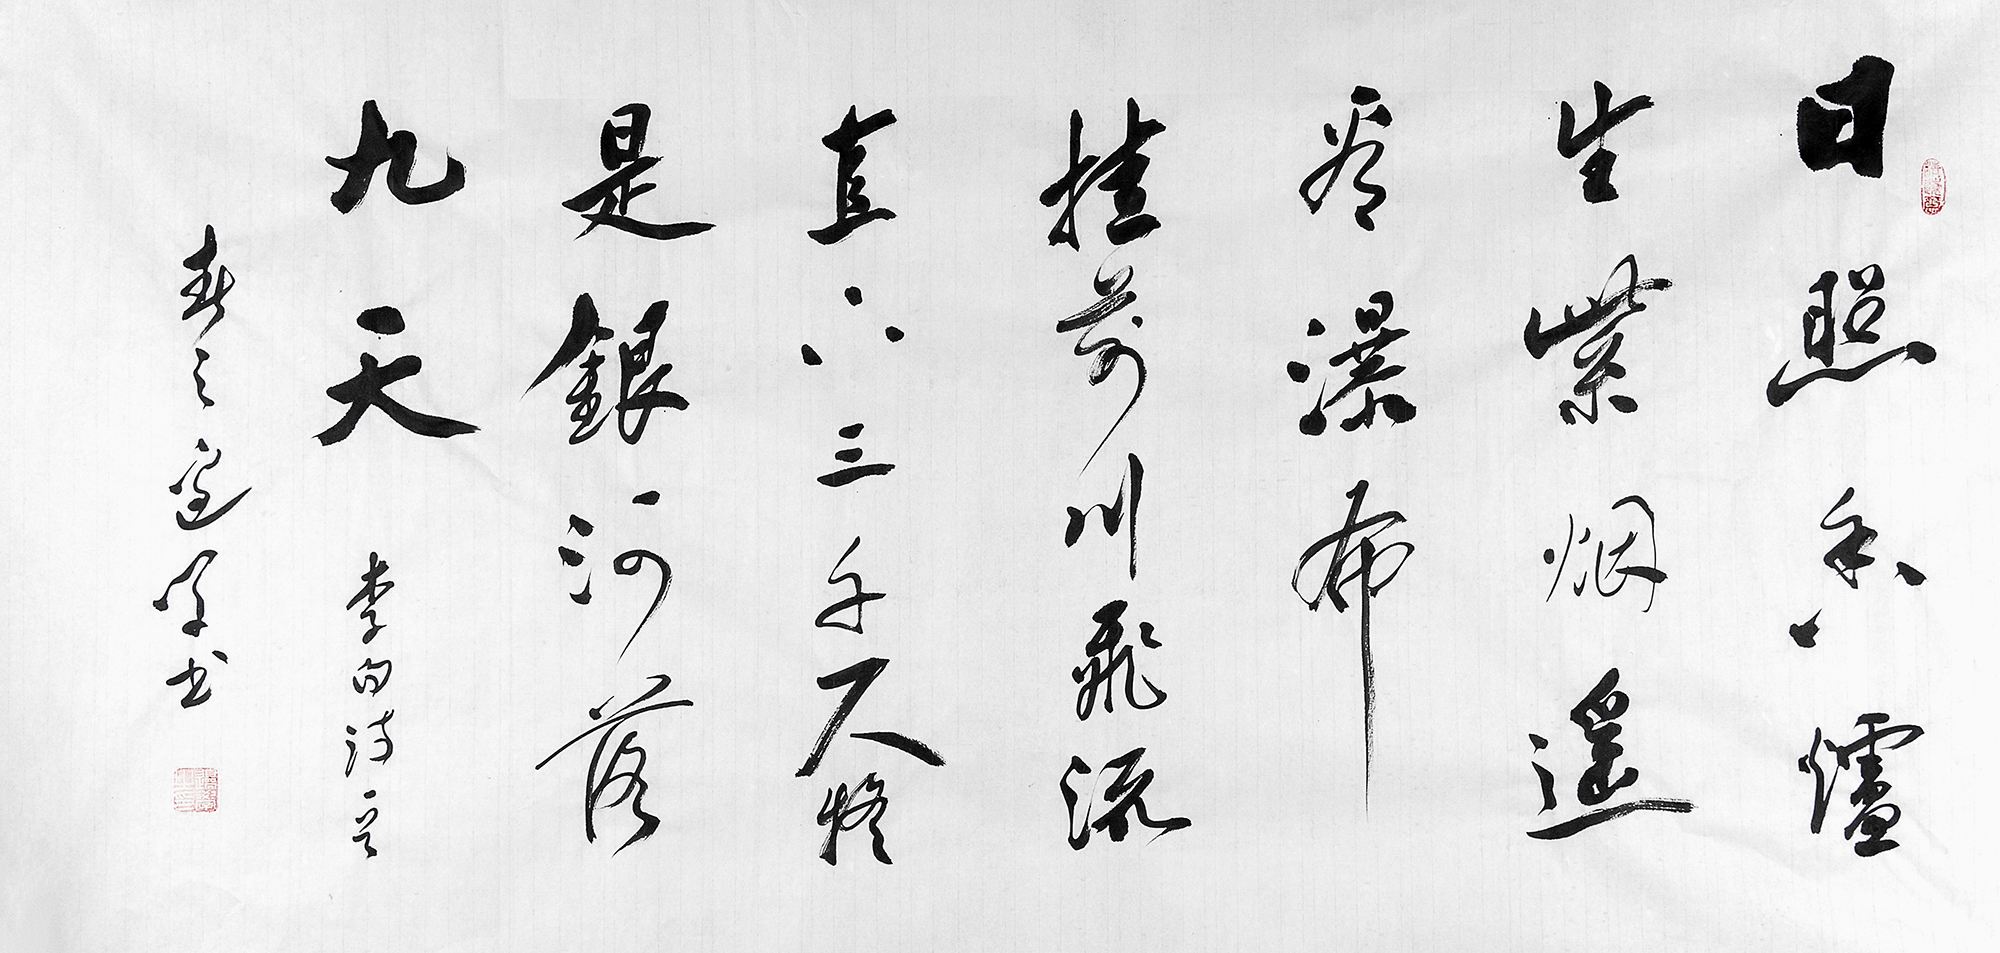 日照香爐
生紫烟遥
看瀑布
挂前川飛流
直下三千尺疑
是銀河落
九天 李白诗一首
春之 书